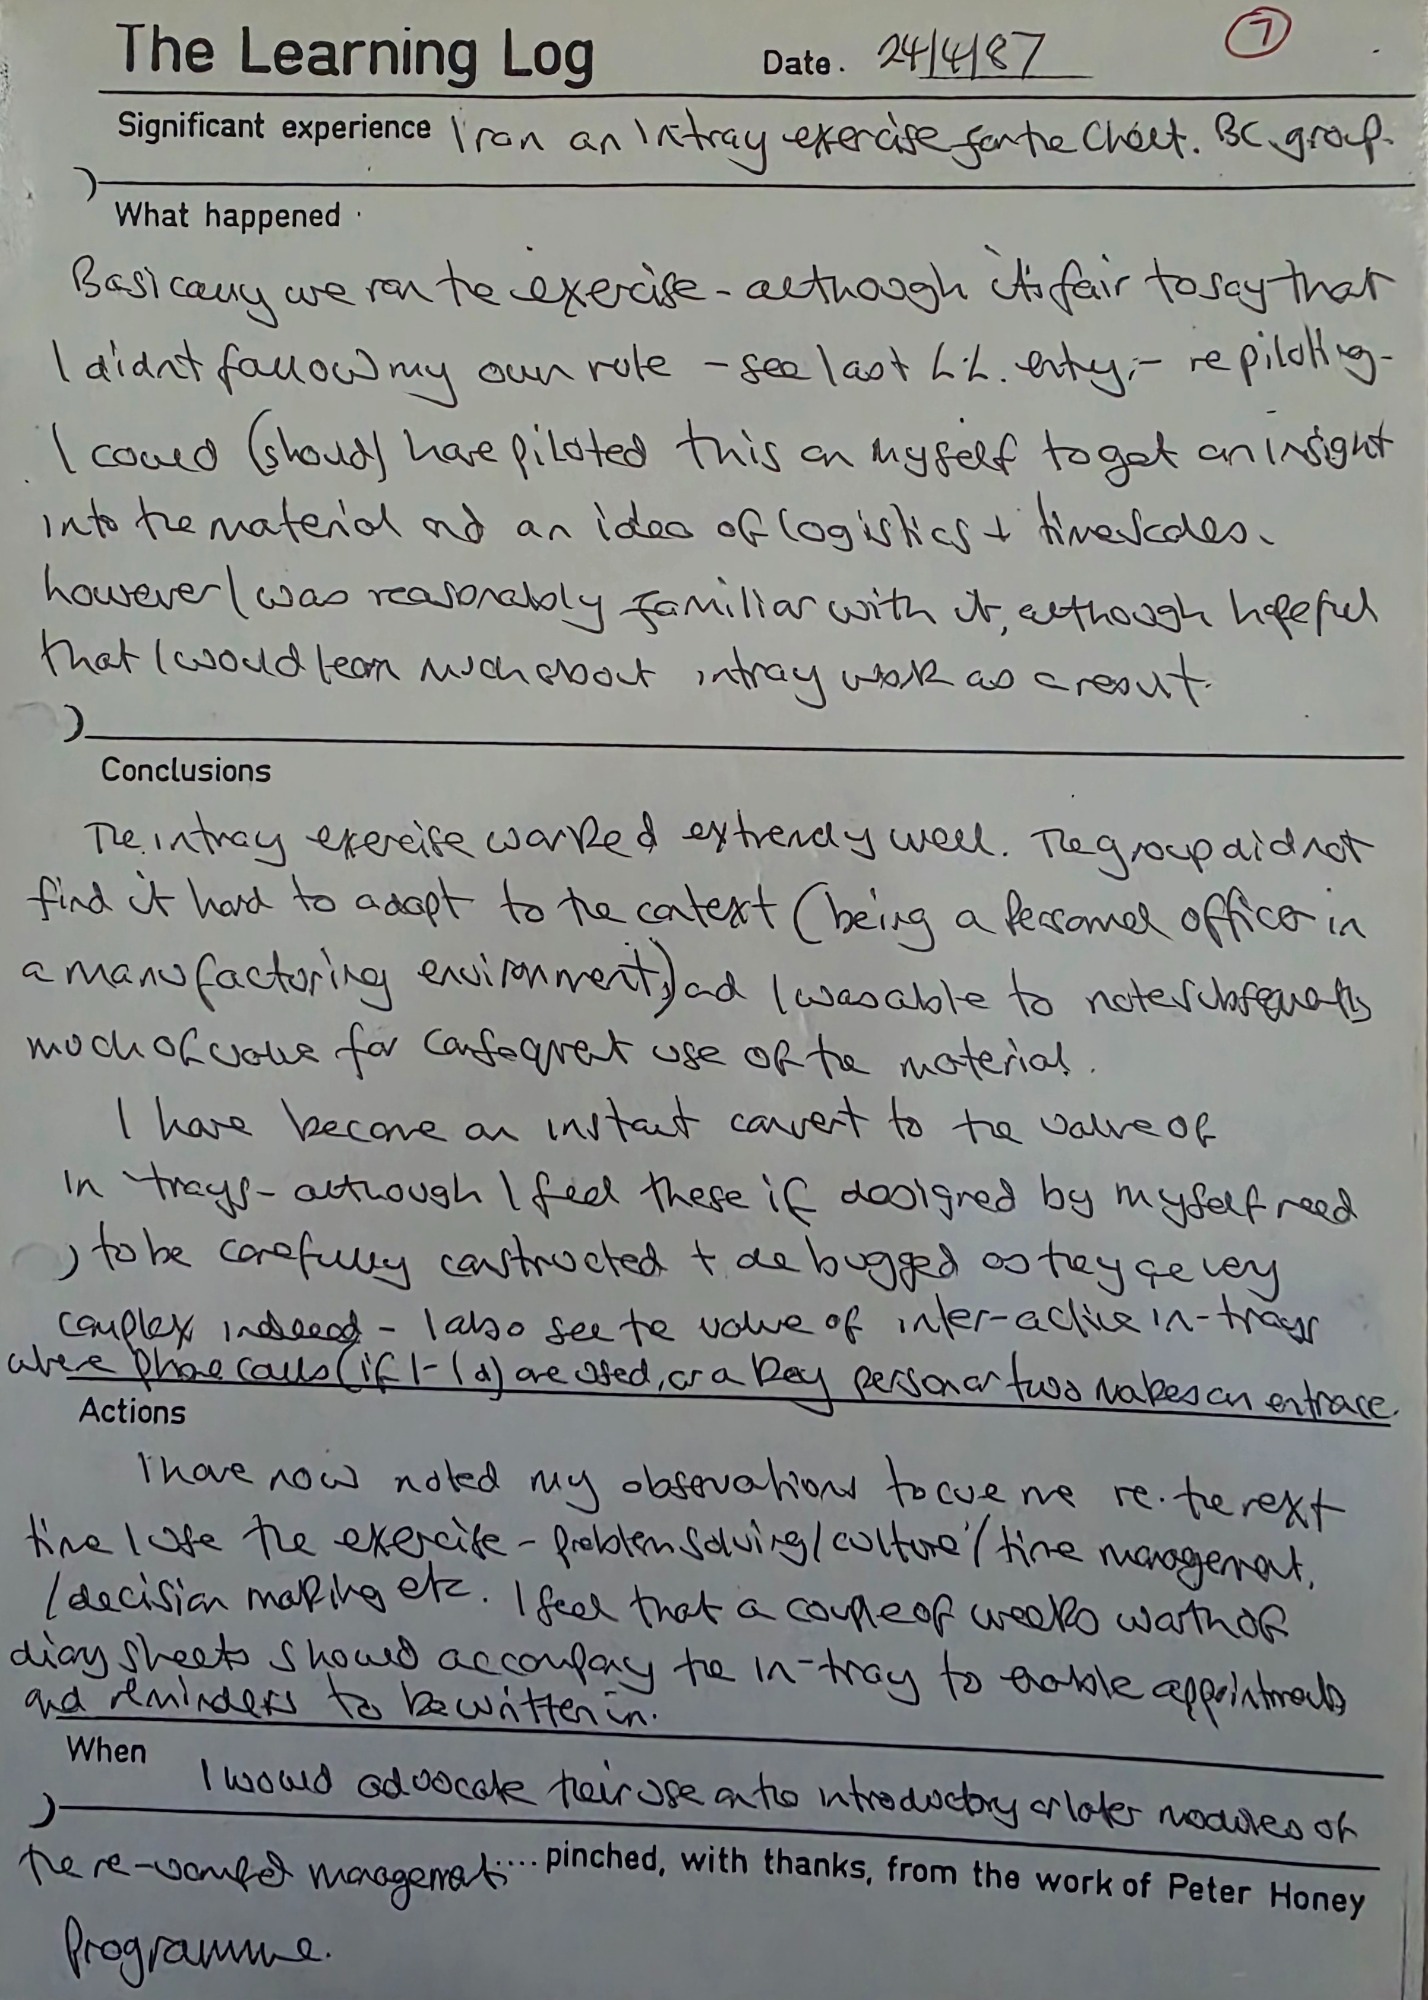 The Learning Log Date. 24/4/87 7
Significant experience I ran an Intray exercise for the Chelt. BC. group.
What happened
Basically we ran the exercise - although it is fair to say that
I didnt follow my own rule - see last L.L. entry; - re piloting -
I could (should) have piloted this on myself to get an insight
into the material and an idea of logistics + timescales.
however I was reasonably familiar with it, although hopeful
that I would learn much about intray work as a result.
Conclusions
The intray exercise worked extremely well. The group did not
find it hard to adapt to the context (being a Personnel officer in
a manufactoring environment,) and I was able to note subsequently
much of value for consequent use of the material.
I have become an instant convert to the value of
in trays - although I feel these if designed by myself need
to be carefully constructed + debugged as they are very
complex indeed - I also see the value of inter-active in-trays
where phone calls (if 1-1 ) are used, or a key person or two makes an entrance.
Actions
I have now noted my observations to cue me re. the next
time I use the exercise - problem solving / 'culture' / time management,
/ decision making etc. I feel that a couple of weeks worth of
diary sheets should accompany the in-tray to enable appointments
and reminders to be written in.
When
I would advocate their use on the introductory or later modules of
the re-vamped management
.... pinched, with thanks, from the work of Peter Honey
Programme.